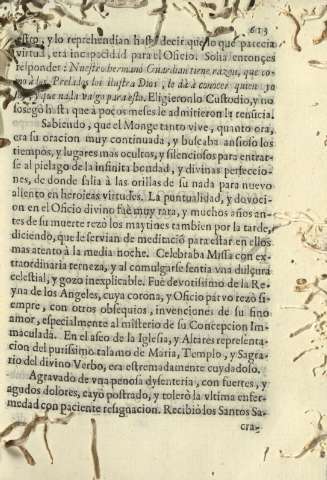 613
esto, y lo reprehendian hasta decir que lo que parecia
virtud, era incapacidad para el Oficio. Solia entonces
responder: Nuestro hermano Guardian tiene razon, que co-
mo à los Prelados los ilustra Dios, le dà à conocer quien yo
soy, y que nada valgo para esto. Eligieronlo Custodio, y no
sosegò hasta que à pocos meses le admitieron la renuncia.
Sabiendo, que el Monge tanto vive, quanto ora,
era su oracion muy continuada, y buscaba ansioso los
tiempos, y lugares mas ocultos, y silenciosos para entrar-
se al pielago de la infinita bondad, y divinas perfeccio-
nes, de donde salia à las orillas de su nada para nuevo
aliento en heroicas virtudes. La puntualidad, y devoci-
on en el Oficio divino fuè muy rara, y muchos años an-
tes de su muerte rezò los maytines tambien por la tarde,
diciendo, que le servian de meditaciò para estar en ellos
mas atento à la media noche. Celebraba Missa con ex-
traordinaria terneza, y al comulgar sentia una dulçura
celestial, y gozo inexplicable. Fuè devotissimo de la Re-
yna de los Angeles, cuya corona, y Oficio parvo rezò si-
empre, con otros obsequios, invenciones de su fino
amor, especialmente al misterio de su Concepcion Im-
maculada. En el aseo de la Iglesia, y Altares representa-
cion del purissimo talamo de Maria, Templo, y Sagra-
rio del divino Verbo, era estremadamente cuydadolo.
Agravado de una penosa dysenteria, con fuertes, y
agudos dolores, cayò postrado, y tolerò la ultima enfer-
medad con paciente resignacion. Recibiò los Santos Sa-
cra-